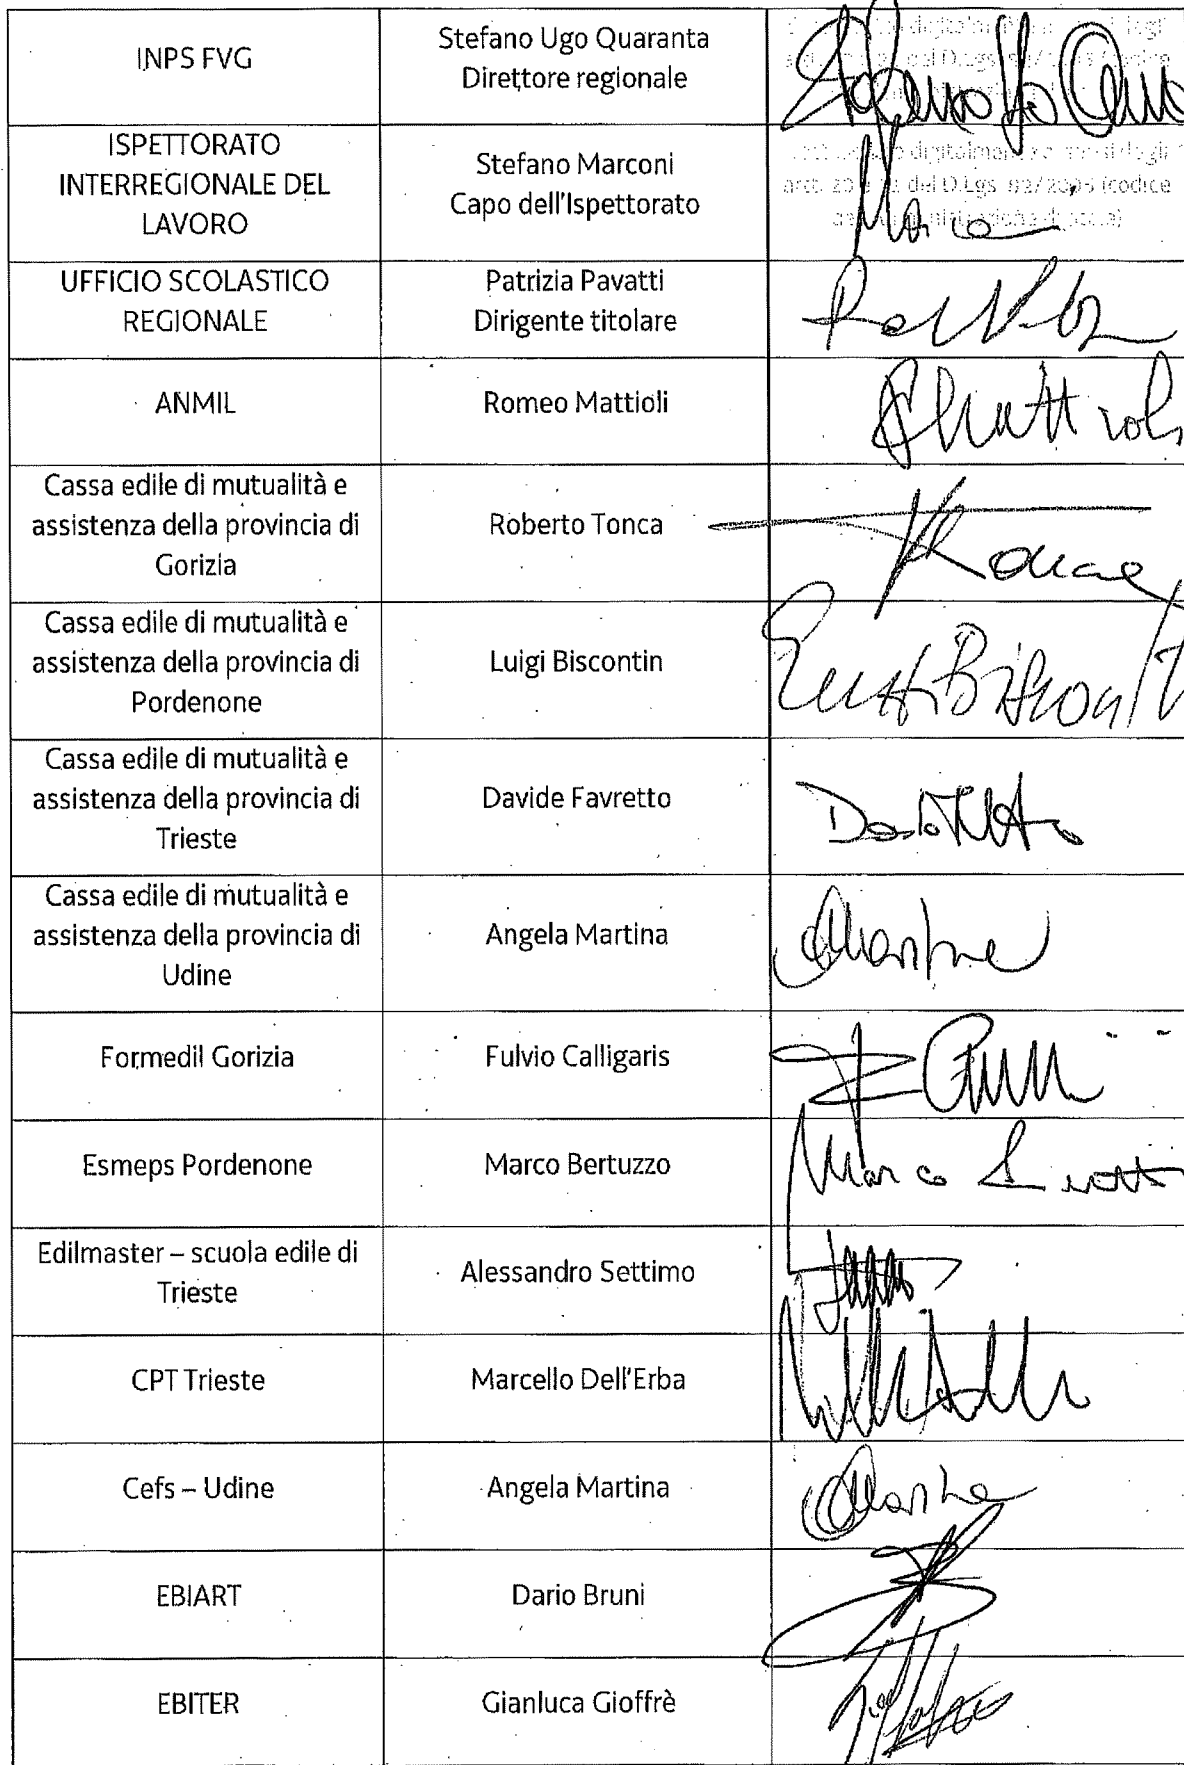 INPS FVG
Stefano Ugo Quaranta
Direttore regionale
ISPETTORATO
INTERREGIONALE DEL
LAVORO
Stefano Marconi
Capo dell'Ispettorato
digitalmente degli
artt. 20 del D.Lgs. 82/2005 (codice
UFFICIO SCOLASTICO
REGIONALE
Patrizia Pavatti
Dirigente titolare
ANMIL
Romeo Mattioli
Cassa edile di mutualità e
assistenza della provincia di
Gorizia
Roberto Tonca
Cassa edile di mutualità e
assistenza della provincia di
Pordenone
Luigi Biscontin
Cassa edile di mutualità e
assistenza della provincia di
Trieste
Davide Favretto
Cassa edile di mutualità e
assistenza della provincia di
Udine
Angela Martina
Formedil Gorizia
Fulvio Calligaris
Esmeps Pordenone
Marco Bertuzzo
Marco
Edilmaster – scuola edile di
Trieste
Alessandro Settimo
CPT Trieste
Marcello Dell'Erba
Cefs – Udine
Angela Martina
EBIART
Dario Bruni
EBITER
Gianluca Gioffrè